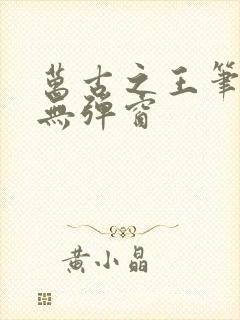 萬古之王筆
無彈窗
黃小晶